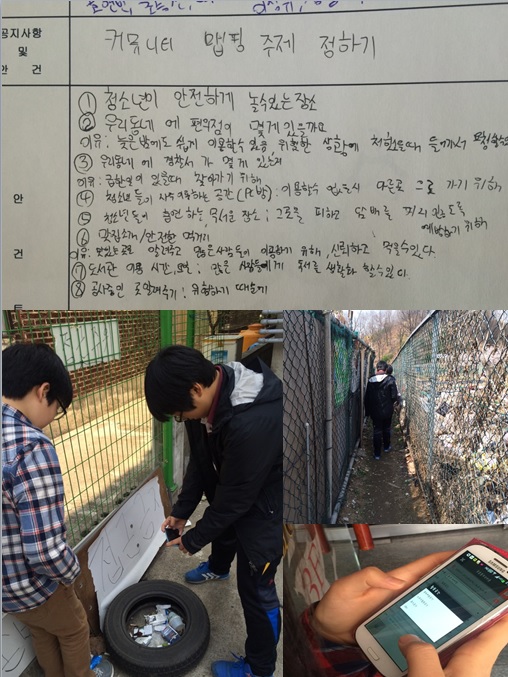 공지사항
및
안 건
커뮤니티 맵핑 주제 정하기
안
건
① 청소년이 안전하게 놀수있는 장소
② 우리동네에 편의점이 몇개 있을까요
이유: 늦은밤에도 쉽게 이용할수 있음 위험한 상황에 처했을때 들어가서 요청할수있
③ 우리동네에 경찰서가 몇개 있는지
이유: 급한일이 있을때 찾아가기 위해
④ 청소년들이 자주 이용하는 공간(PC방): 이용할수 없을시 다른곳으로 가기 위해
⑤ 청소년들이 흡연하는 장소; 그곳을 피하고 담배를 피지 않도록
예방하기 위해
⑥ 맛집소개/안전한 먹거리
많은사람들이 이용하기 위해, 신뢰하고 먹을수있다.
⑦ 도서관 이용 시간, 많은 사람들에게 독서를 생활화 할수있다.
⑧ 공사중인 곳 알려주기: 위험하기 때문에